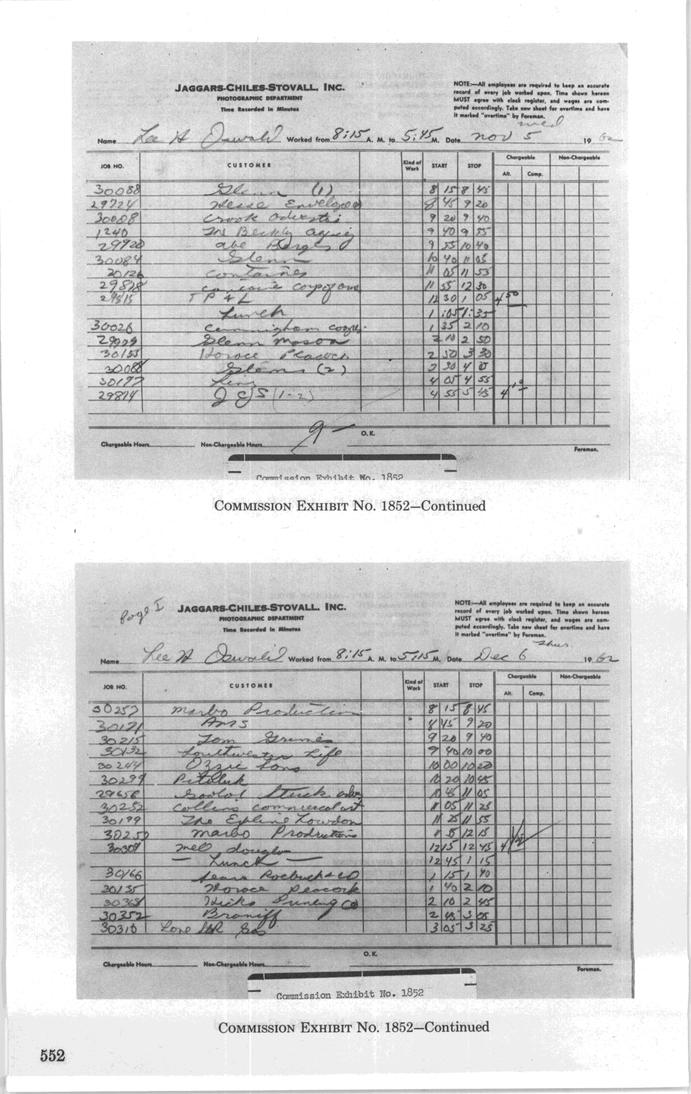 JAGGARS-CHILES-STOVALL, INC.
PHOTOGRAPHIC DEPARTMENT
Time Recorded in Minutes
NOTE:—All employees are required to keep an accurate
record of every job worked upon. Time shown hereon
MUST agree with clock register, and wages are com-
puted accordingly. Take new sheet for overtime and have
it marked "overtime" by Foreman.
wed
Name Lee H Oswald Worked from 8:15 A. M. to 5:45 M. Date Nov 5 19 62
JOB NO. CUSTOMER Kind of Work START STOP Chargeable Non-Chargeable
Alt. Comp.
30088 Glenn (1) 8 15 8 45
29724 Hesse Envelope 8 45 9 20
30008 Crook 9 20 9 40
1240 9 40 9 55
29920 abe 9 55 10 40
30084 Glenn 10 40 11 05
20126 containes 11 05 11 55
29828 11 55 12 30
29515 T P & L 12 30 1 05 4 50
Lunch 1:05 1:35
30026 Cunningham 1 35 2 10
29909 Glenn Mason 2 10 2 50
30153 Horace Peacock 2 50 3 30
30088 Glenn (2) 3 30 4 05
30177 King 4 05 4 55
29874 JCS (1-2) 4 55 5 45 4 10
9
Chargeable Hours Non-Chargeable Hours O.K. Foreman.
Commission Exhibit No. 1852
COMMISSION EXHIBIT NO. 1852—Continued
Page I
JAGGARS-CHILES-STOVALL, INC.
PHOTOGRAPHIC DEPARTMENT
Time Recorded in Minutes
NOTE:—All employees are required to keep an accurate
record of every job worked upon. Time shown hereon
MUST agree with clock register, and wages are com-
puted accordingly. Take new sheet for overtime and have
it marked "overtime" by Foreman.
Thur.
Name Lee H Oswald Worked from 8:15 A. M. to 5:15 M. Date Dec 6 19 62
JOB NO. CUSTOMER Kind of Work START STOP Chargeable Non-Chargeable
Alt. Comp.
30257 Marbo Production 8 15 8 45
30171 Ams 8 45 9 20
30215 Tom 9 20 9 40
30132 Southwestern Life 9 40 10 00
30244 Ozzie Sons 10 00 10 20
30299 Pitluk 10 20 10 45
29658 10 45 11 05
30252 Collins commercial art 11 05 11 25
30199 The Expline Lowdon 11 25 11 55
30257 Marbo Productions 11 55 12 15
30301 Mel Douglas 12 15 12 45 4 1/2
— Lunch — 12 45 1 15
30166 Sears Roebuck & Co 1 15 1 40
30135 Horace Peacock 1 40 2 10
30368 Hicks Co 2 10 2 45
30352 Braniff 2 45 3 05
30310 Lone Star Gas 3 05 3 25
Chargeable Hours Non-Chargeable Hours O.K. Foreman.
Commission Exhibit No. 1852
COMMISSION EXHIBIT NO. 1852—Continued
552